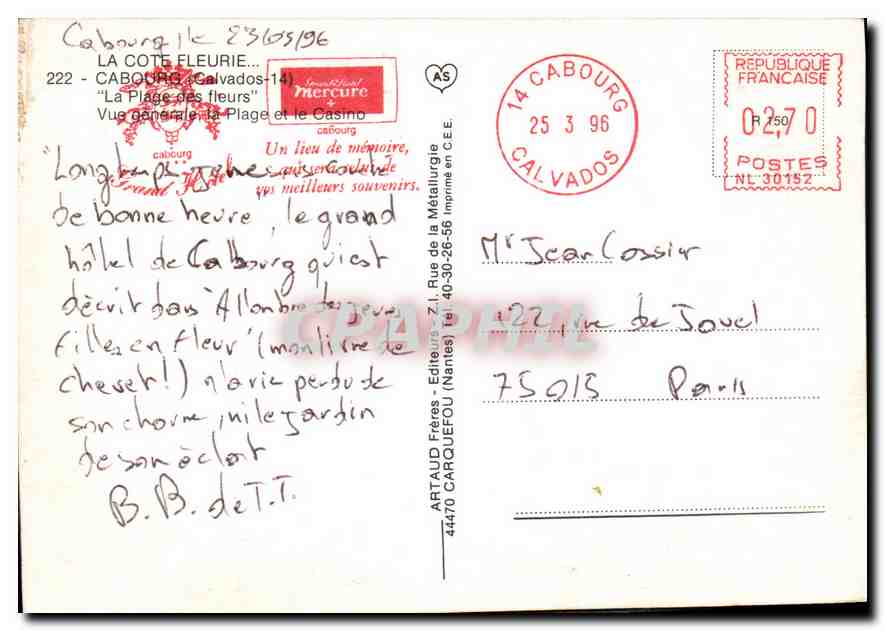 Cabourg, le 23/03/96
LA COTE FLEURIE...
222 - CABOURG (Calvados-14)
"La Plage des fleurs"
Vue générale, la Plage et le Casino
cabourg
Grand Hôtel
mercure
cabourg
Un lieu de mémoire,
qui sera celui de
vos meilleurs souvenirs.
"Longtemps je me suis couché
de bonne heure", le grand
hôtel de Cabourg qui est
décrit dans "A l'ombre des jeunes
filles en fleur" (mon livre de
chevet!) n'a rie perdu de
son charme, ni le jardin
de son éclat
B. B. de T. T.
AS
ARTAUD Frères - Editeurs - Z.I. Rue de la Métallurgie
44470 CARQUEFOU (Nantes) Tél. 40-30-26-56 Imprimé en C.E.E.
14 CABOURG
25 3 96
CALVADOS
REPUBLIQUE
FRANCAISE
02,70
R 150
POSTES
NL 30152
Mr Jean Cossier
122, rue de Javel
75015 Paris
CPAPHIL